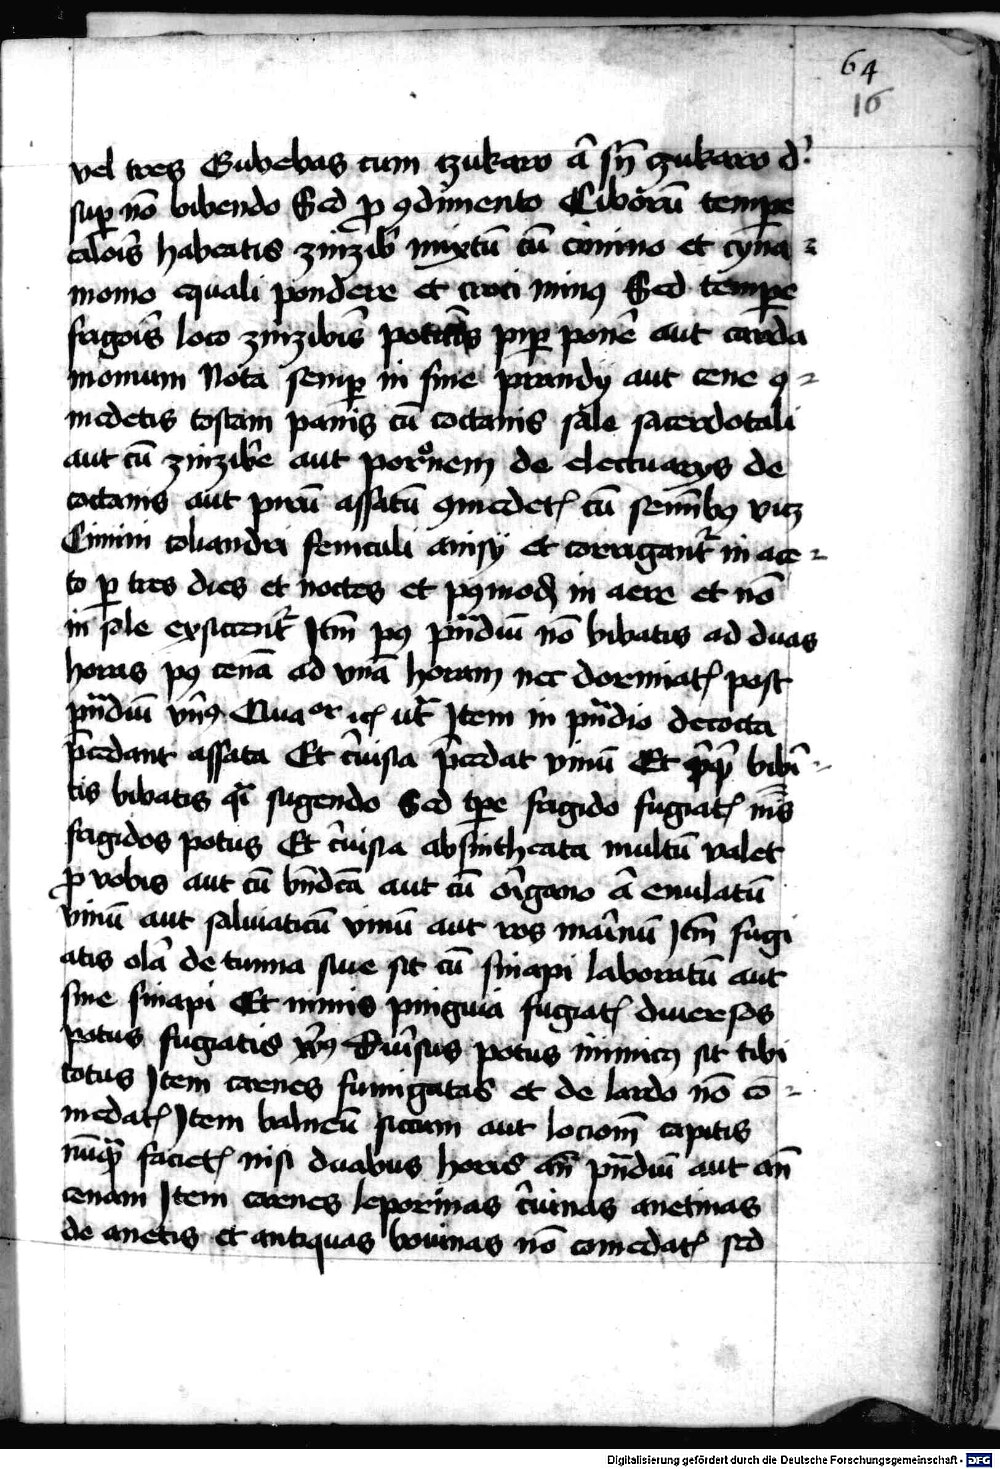 64
16
vel tres Cubebas cum tzukaro a͞ sn̄ tzukaro d᷑
suꝑ nō bibendo Sed ꝓ ꝯdimento Ciborū tempe
calois̄ habeatis zinziƀ mixtū cū cimino et cyna
momo equali pondere et croci minꝰ Sed tempe
frigois̄ loco zinzibis̄ piꝑ ponē aut carda
momum Nota sempꝑ in fine prandij aut cene ꝯ
medetis tostam panis cū coctanis sale sacerdotali
aut cū zinzibe aut porōnem de electuarijs de
coctanis aut pirū assatū ꝯmedetꝭ cū semībꝰ vitz
Cimini coliandri feniculi anisy et corrigant᷑ in ace
to ꝑ tres dies et noctes et pꝰmodū in aere et nō
in sole exsiccent᷑ Itm̄ pꝰ pn̄diū nō bibatis ad duas
horas pꝰ cenā ad vnā horam nec dormiatꝭ post
pn̄diū vn̄ꝰ Item in pn̄dio decocta
p̄cedant assata Et c̄uisia p̄cedat vinū Et bibi
tis bibatis qͣi sugendo Sed tꝑe frigido fugiatꝭ nīs
frigidos potus Et c̄uisia absintheata multū valet
ꝓ vobis aut cū bn̄dcā aut cū oīgano a͞ enulatū
vinū aut salviaticū vinū aut ros maīnū Itm̄ fugi
atis olā de tunna siue sit cū sinapi laboratū aut
sine sinapi Et nimis pinguia fugiatꝭ diuersos
potus fugiatis vn̄ꝰ Diūsus potus inimicꝰ sit tibi
totus Item carnes fumigatas et de lardo nō cō
medatꝭ Item balneū siccum aut locionē capitis
nūqͣ facietꝭ nisi duabus horis an̄ pn̄diū aut an̄
cenam Item carnes leporinas c̄uinas anetinas
de anetis et antiquas bouinas nō comedatꝭ sed
Digitalisierung gefördert durch die Deutsche Forschungsgemeinschaft - DFG